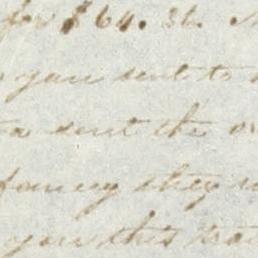 for $64. 36.
you sent to
sent the
fancy they
you this